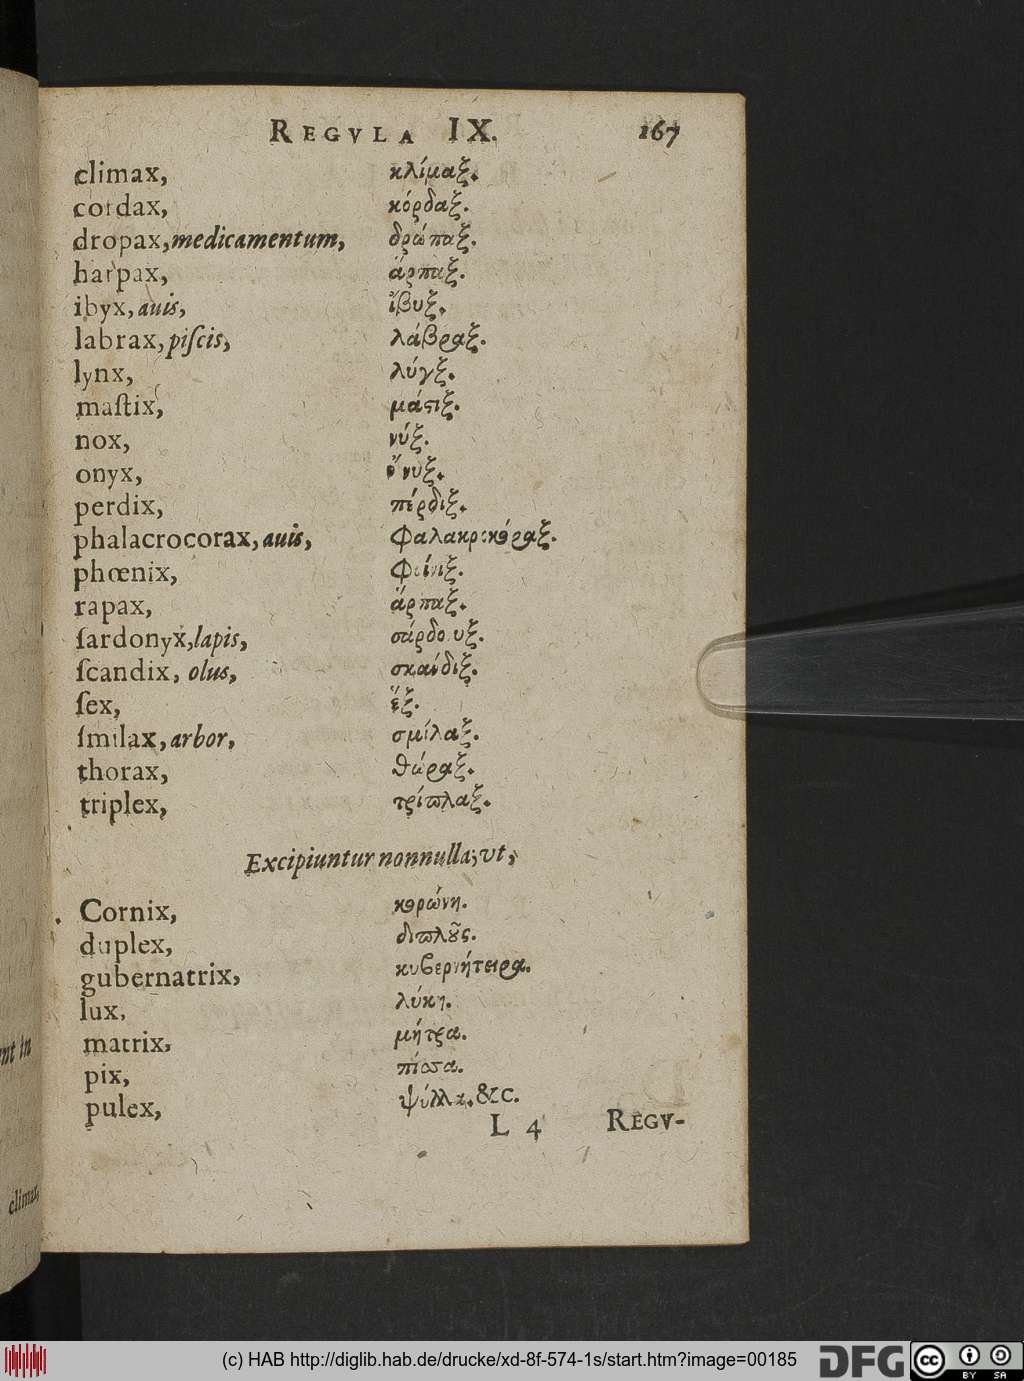 REGVLA IX. 167
climax, κλίμαξ.
cordax, κόρδαξ.
dropax, medicamentum, δρώπαξ.
harpax, ἅρπαξ.
ibyx, auis, ἴβυξ.
labrax, piſcis, λάβραξ.
lynx, λύγξ.
maſtix, μάϛιξ.
nox, νύξ.
onyx, ὄνυξ.
perdix, πέρδιξ.
phalacrocorax, auis, φαλακροκόραξ.
phœnix, φοίνιξ.
rapax, ἅρπαξ.
ſardonyx, lapis, σάρδονυξ.
ſcandix, olus, σκάνδιξ.
ſex, ἕξ.
ſmilax, arbor, σμίλαξ.
thorax, θώραξ.
triplex, τρίπλαξ.
Excipiuntur nonnulla; vt,
Cornix, κορώνη.
duplex, διπλοῦς.
gubernatrix, κυβερνήτειρα.
lux, λύκη.
matrix, μήτρα.
pix, πίσσα.
pulex, ψύλλα. &c.
L 4 REGV-
ent in
climax,
(c) HAB http://diglib.hab.de/drucke/xd-8f-574-1s/start.htm?image=00185
DFG
cc BY SA